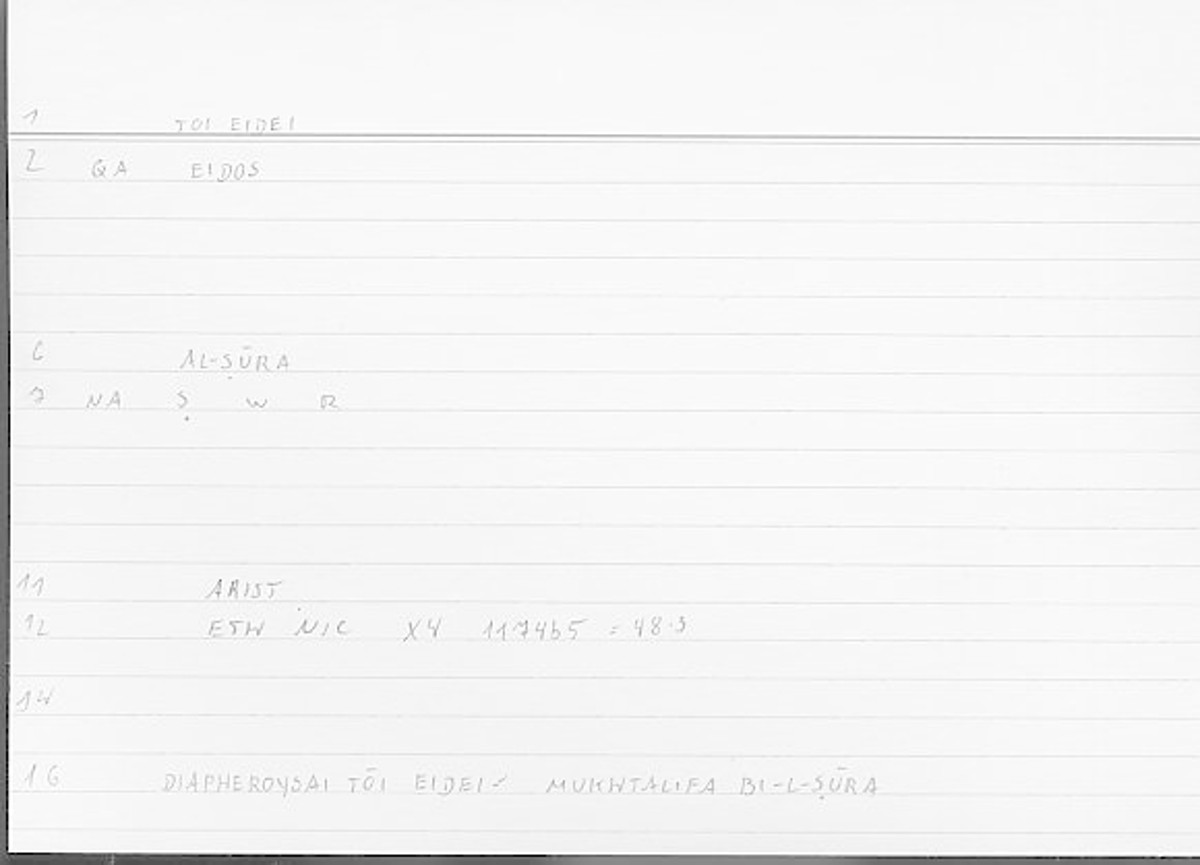 1 TŌI EIDEI
2 QA EIDOS
6 AL-ṢŪRA
7 NA Ṣ W R
11 ARIST
12 ETH NIC X4 1174b5 = 48.9
14
16 DIAPHEROYSAI TŌI EIDEI - MUKHTALIFA BI-L-ṢŪRA